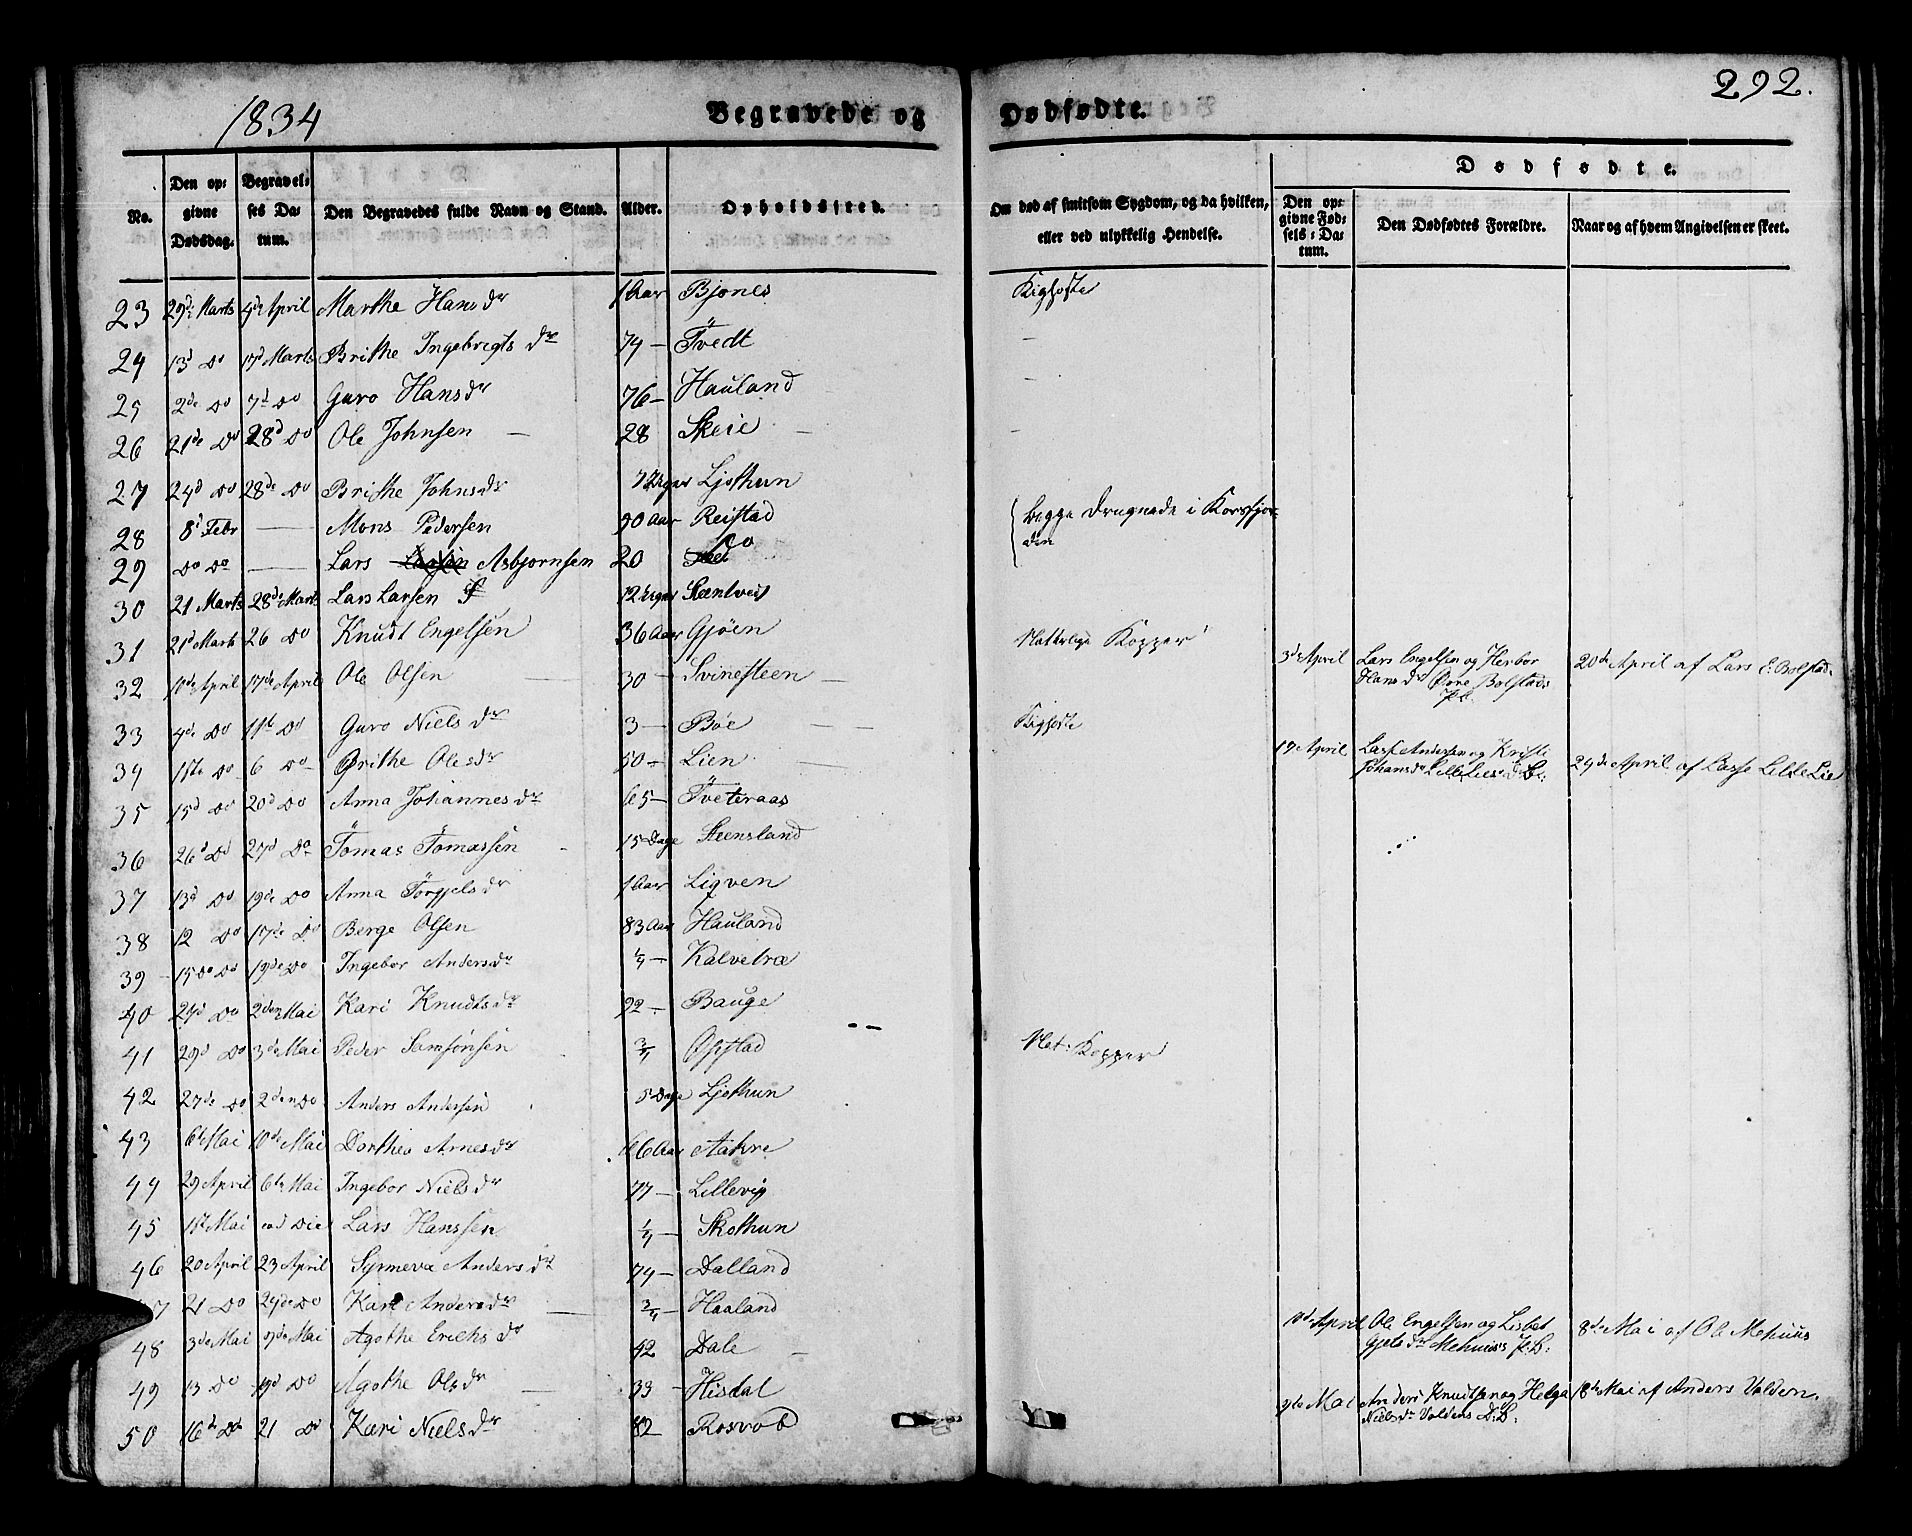 1834 Begravede og Dødfødte. 292.
No. Den opgivne Dødsdag. Begravelses Datum. Den Begravedes fulde Navn og Stand. Alder. Opholdssted. Om død af smitsom Sygdom, og da hvilken, eller ved ulykkelig Hendelse. Dødfødte. Den opgivne Fødsels-Datum. Den Dødfødtes Forældre. Naar og af hvem Angivelsen er skeet.
23 29de Marts 4de April Marthe Hansdr 1 Aar Bjones Kighoste
24 13d Do 17d Marts Brithe Ingebrigtsdr 74 — Tvedt —
25 2de Do 7d Do Guro Hansdr 76 — Hauland —
26 21de Do 28d Do Ole Johnsen — 28 Skeie — —
27 24d Do 28de Do Brithe Johnsdr 7 Uger Ljothun
28 8d Febr — Mons Pedersen 90 Aar Reistad Begge Drugnede i Korsfjor-
29 Do Do — Lars Larsen Asbjørnsen 20 Do den
30 21 Marts 28de Marts Lars Larsen 12 Uger Sæntveit
31 21d Marts 26 Do Knudt Engelsen 36 Aar Gjøen Natterlige Kopper
32 10de April 17de April Ole Olsen — 30 — Svinesteen — 3de April Lars Engelsen og Herbor 20de April af Lars E. Bolstad.
Hansdr Øvre Bolstads
33 4de Do 11te Do Guro Nielsdr 3 — Bøe — Kighoste
34 1ste Do 6 Do Brithe Olesdr 50 — Lien — 17 April Lasse Andersen og Kristi 24de April af Lasse Lille Lie
Johansdr Lille Lies
35 15d Do 20d Do Anna Johannesdr 65 — Tveteraas
36 26d Do 27d Do Tomas Tomassen 15 Dage Steensland
37 13d Do 19de Do Anna Torgjelsdr 1 Aar Ligven
38 12 Do 17de Do Berge Olsen 83 Aar Hauland
39 15 Do Do 19de Do Ingebor Andersdr 1/4 — Kalvetræ
40 24d Do 2den Mai Kari Knudtsdr 92 — Bauge
41 29d Do 3de Mai Peder Samsonsen 3/4 Opstad Nat: Kopper
42 27de Do 2den Do Anders Andersen 5 Dage Ljothun
43 6te Mai 10de Mai Dorthea Arnesdr 66 Aar Aakre
44 29 April 6te Mai Ingebor Nielsdr 77 — Lillevig
45 1st Mai Lars Hanssen 1/4 — Skothun
46 20 April 23 April Synneva Andersdr 74 — Dalland
47 21 Do 29de Do Kari Andersdr — 3/4 — Haaland
48 3de Mai 9de Mai Agothe Erichsdr 42 Dale — 10d April Ole Engelsen og Lisbet 8de Mai af Ole Mehuus
Gjelsdr Mehuus's
49 13 Do 19d Do Agothe Olsdr — 33 — Hisdal 9de Mai Anders Knudtsen og Helga 18de Mai af Anders Valden.
Nielsdr Valdens
50 16de Do 21 Do Kari Nielsdr 82 — Rosvob